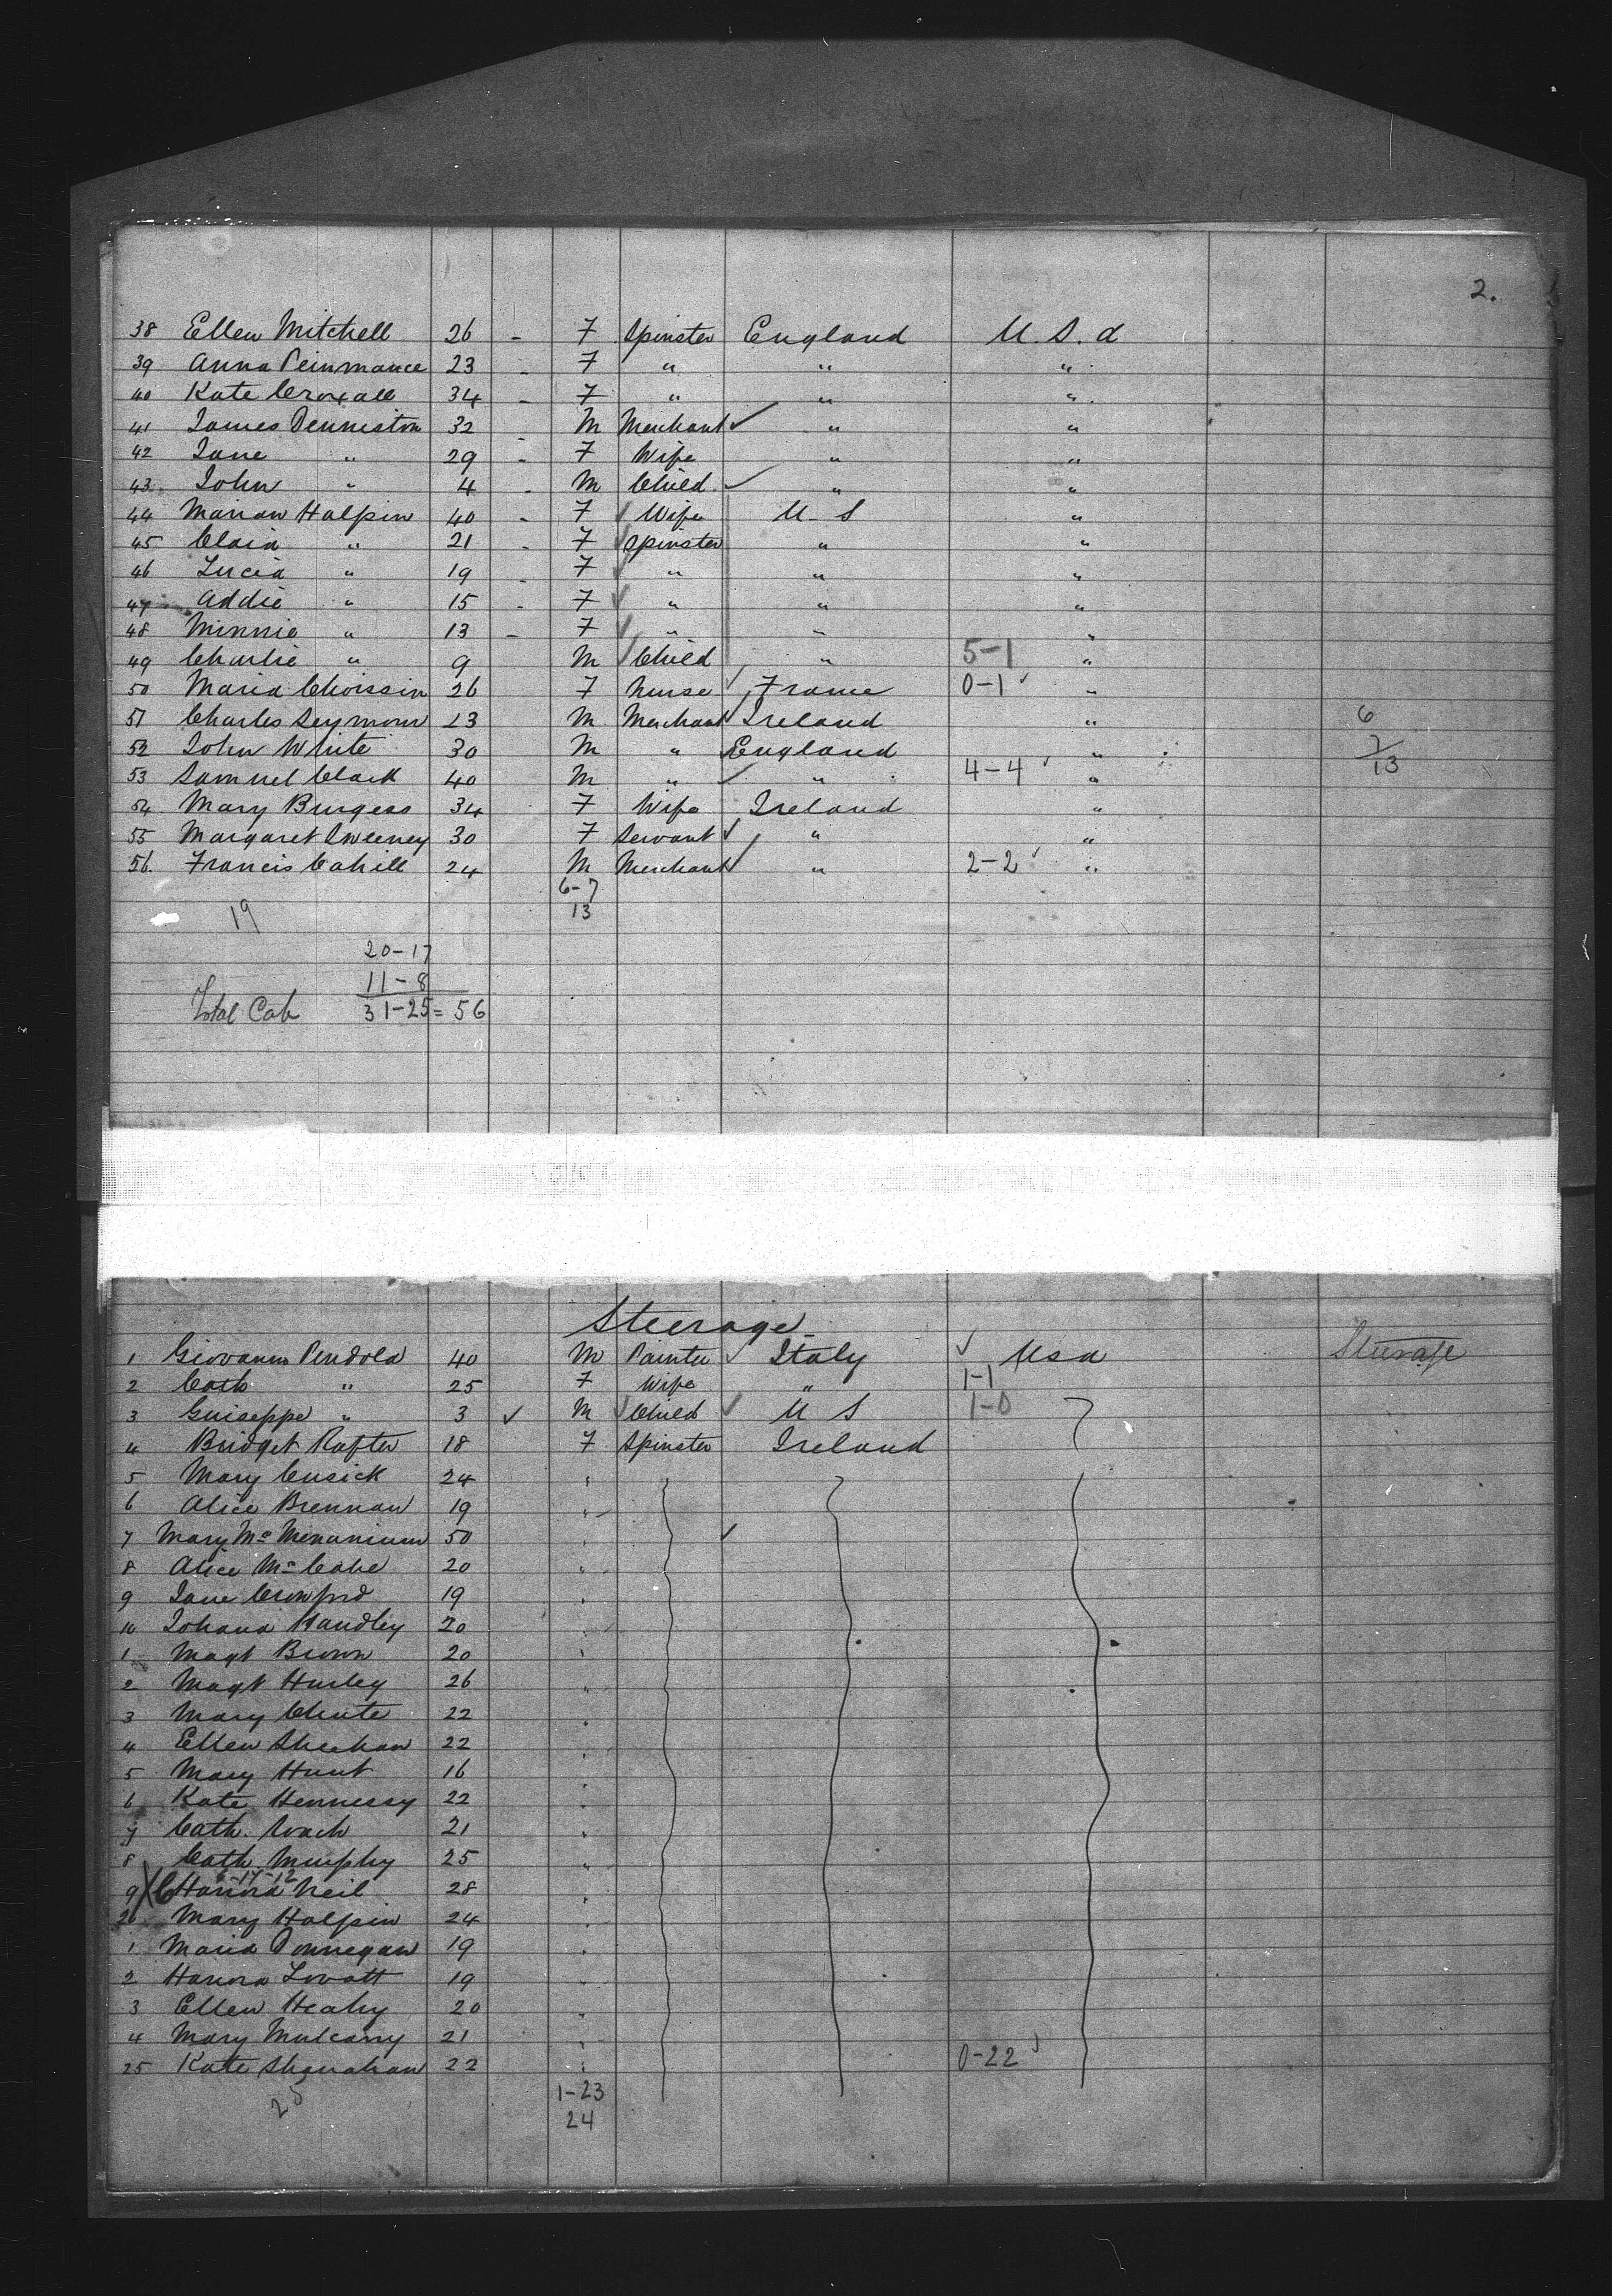 2.
38 Ellen Mitchell 26 - F Spinster England U.S.a
39 Anna 23 - F " " "
40 Kate Croxall 34 - F " " "
41 James Penniston 32 - M Merchant " "
42 Jane " 29 - F Wife " "
43 John " 4 - M Child " "
44 Marian Halpin 40 - F Wife U.S "
45 Clara " 21 - F Spinster " "
46 Lucia " 19 - F " " "
47 Addie " 15 - F " " "
48 Minnie " 13 - F " " "
49 Charlie " 9 M Child " 5-1 "
50 Maria Choissin 26 F Nurse France 0-1 "
51 Charles Seymour 23 M Merchant Ireland " 6
52 John White 30 M " England " 7
53 Samuel Clark 40 M " " 4-4 " 13
54 Mary Burgess 34 F Wife Ireland "
55 Margaret Sweeney 30 F Servant " "
56. Francis Cahill 24 M Merchant " 2-2 "
6-7
19 13
20-17
11-8
Total Cab 31-25=56
Steerage
1 Giovanni Pendola 40 M Painter Italy Usa Steerage
2 Cath " 25 F Wife " 1-1
3 Guiseppe " 3 M Child U S 1-0
4 Bridget Rafter 18 F Spinster Ireland
5 Mary Cusick 24 "
6 Alice Brennan 19 "
7 Mary Mc Menanium 50 "
8 Alice Mc Cabe 20 "
9 Jane Crawford 19 "
10 Johana Handley 20 "
1 Magt Brown 20 "
2 Magt Hurley 26 "
3 Mary Chute 22 "
4 Ellen Sheehan 22 "
5 Mary Hunt 16 "
6 Kate Hennessy 22 "
7 Cath. Roach 21 "
8 Cath Murphy 25 "
9 X C Hanora Neil 28 "
20 Mary Halpin 24 "
1 Maria Donnegan 19 "
2 Hanora Lovatt 19 "
3 Ellen Heahy 20 "
4 Mary Mulcarry 21 "
25 Kate Shanahan 22 " 0-22
25 1-23
24